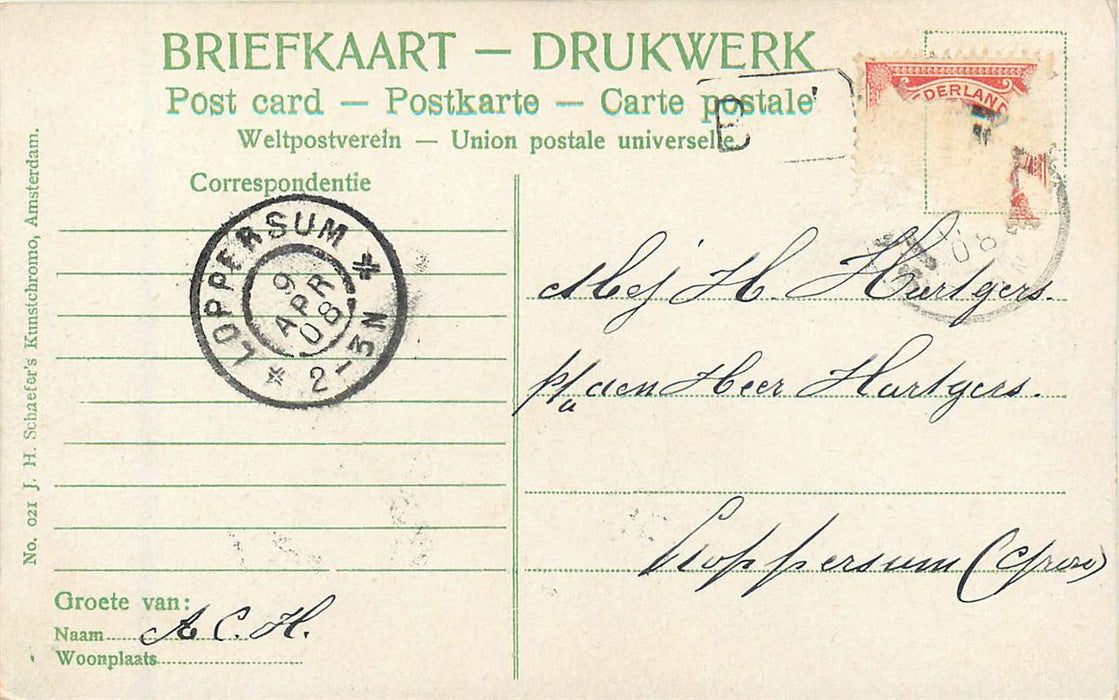 BRIEFKAART — DRUKWERK
Post card — Postkarte — Carte postale
Weltpostverein — Union postale universelle
B
DERLAND
Correspondentie
LOPPERSUM
9 APR 08
2-3N
08
N
Mej H. Hartgers.
p/a den Heer Hartgers.
Loppersum (Gron)
Groete van:
Naam A C. H.
Woonplaats
No. 021 J. H. Schaefer's Kunstchromo, Amsterdam.